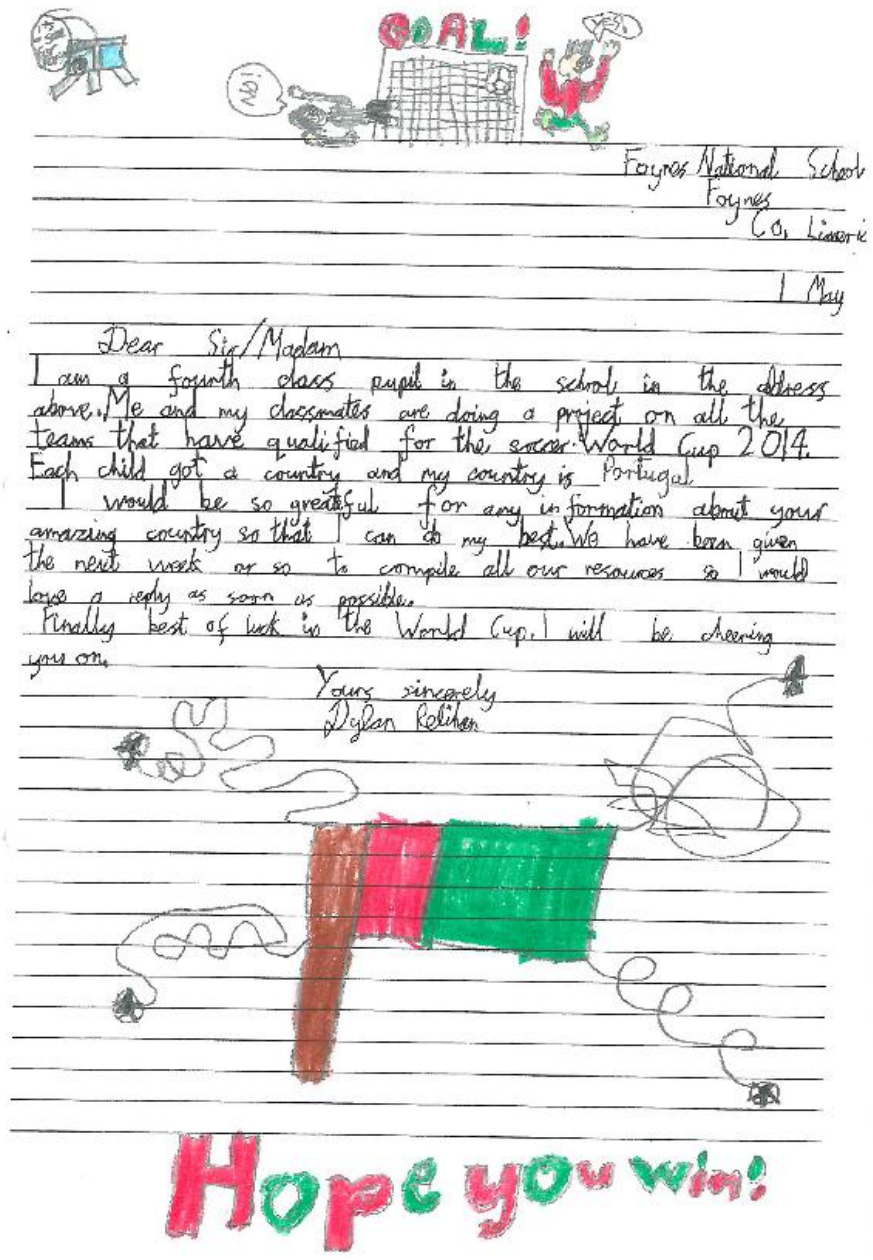 GOAL!
YES!
NO!
Foynes National School
Foynes
Co. Limeric
1 May
Dear Sir/Madam
I am a fourth class pupil in the school in the address
above. Me and my classmates are doing a project on all the
teams that have qualified for the soccer World Cup 2014.
Each child got a country and my country is Portugal
I would be so greatful for any information about your
amazing country so that I can do my best. We have been given
the next week or so to compile all our resources so I would
love a reply as soon as possible.
Finally best of luck in the World Cup. I will be cheering
you on.
Yours sincerely
Dylan Relihan
Hope you win!